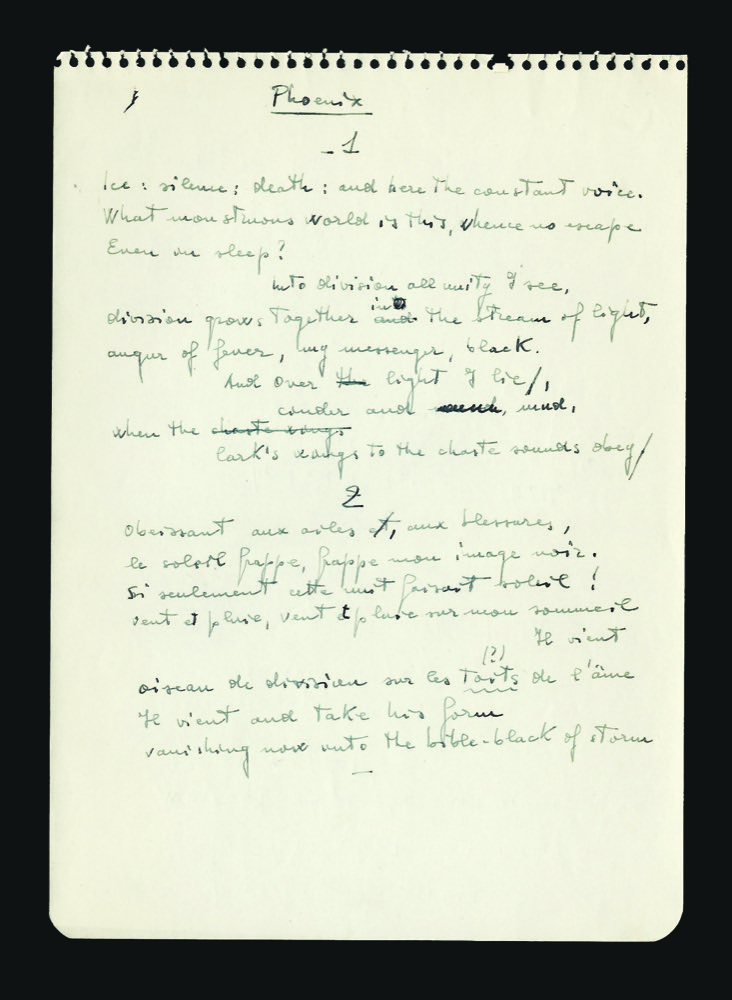 Phoenix
1
Ice : silence : death : and here the constant voice.
What monstruous world is this, whence no escape
Even in sleep?
Into division all unity I see,
into
division grows together and the stream of light,
augur of fever, my messenger, black.
And over the light I lie/,
condor and mind,
when the chaste wings
lark's wings to the chaste sounds obey/
2
Obeissant aux ailes et, aux blessures,
le soleil frappe, frappe mon image noir.
Si seulement cette nuit faisait soleil !
vent et pluie, vent et pluie sur mon sommeil
Il vient
(?)
oiseau de division sur les toits de l'âme
Il vient and take his form
vanishing now into the bible-black of storm